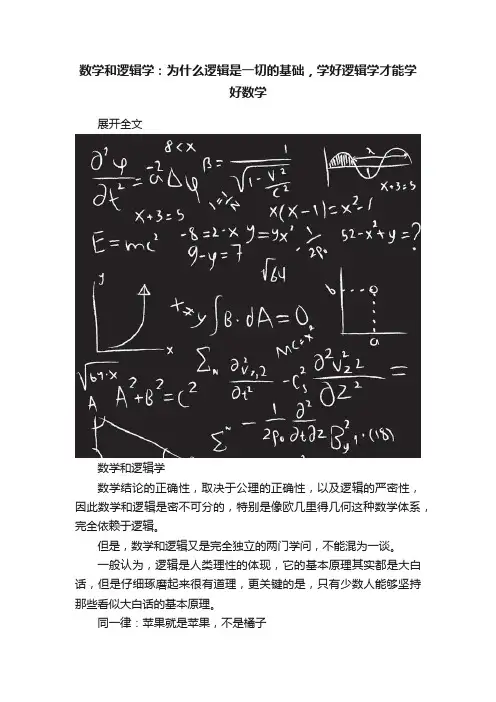 数学和逻辑学：为什么逻辑是一切的基础，学好逻辑学才能学
好数学
展开全文
8<x
∂²φ/∂t² = a⁻²Δφ
β = 1/√(1-V²/C²)
X+3=5
X+3=5
x(x-1)=x²-1
E=mc²
-8=2-x
y=yx²
9-y=7
1/2p₀
52-x²+y=?
√64
y
x
x≠y
∫B·dA=0
b
a
√64·x
A
A²+B²=C²
MC=x²
数学和逻辑学
数学结论的正确性，取决于公理的正确性，以及逻辑的严密性，
因此数学和逻辑是密不可分的，特别是像欧几里得几何这种数学体系，
完全依赖于逻辑。
但是，数学和逻辑又是完全独立的两门学问，不能混为一谈。
一般认为，逻辑是人类理性的体现，它的基本原理其实都是大白
话，但是仔细琢磨起来很有道理，更关键的是，只有少数人能够坚持
那些看似大白话的基本原理。
同一律：苹果就是苹果，不是橘子